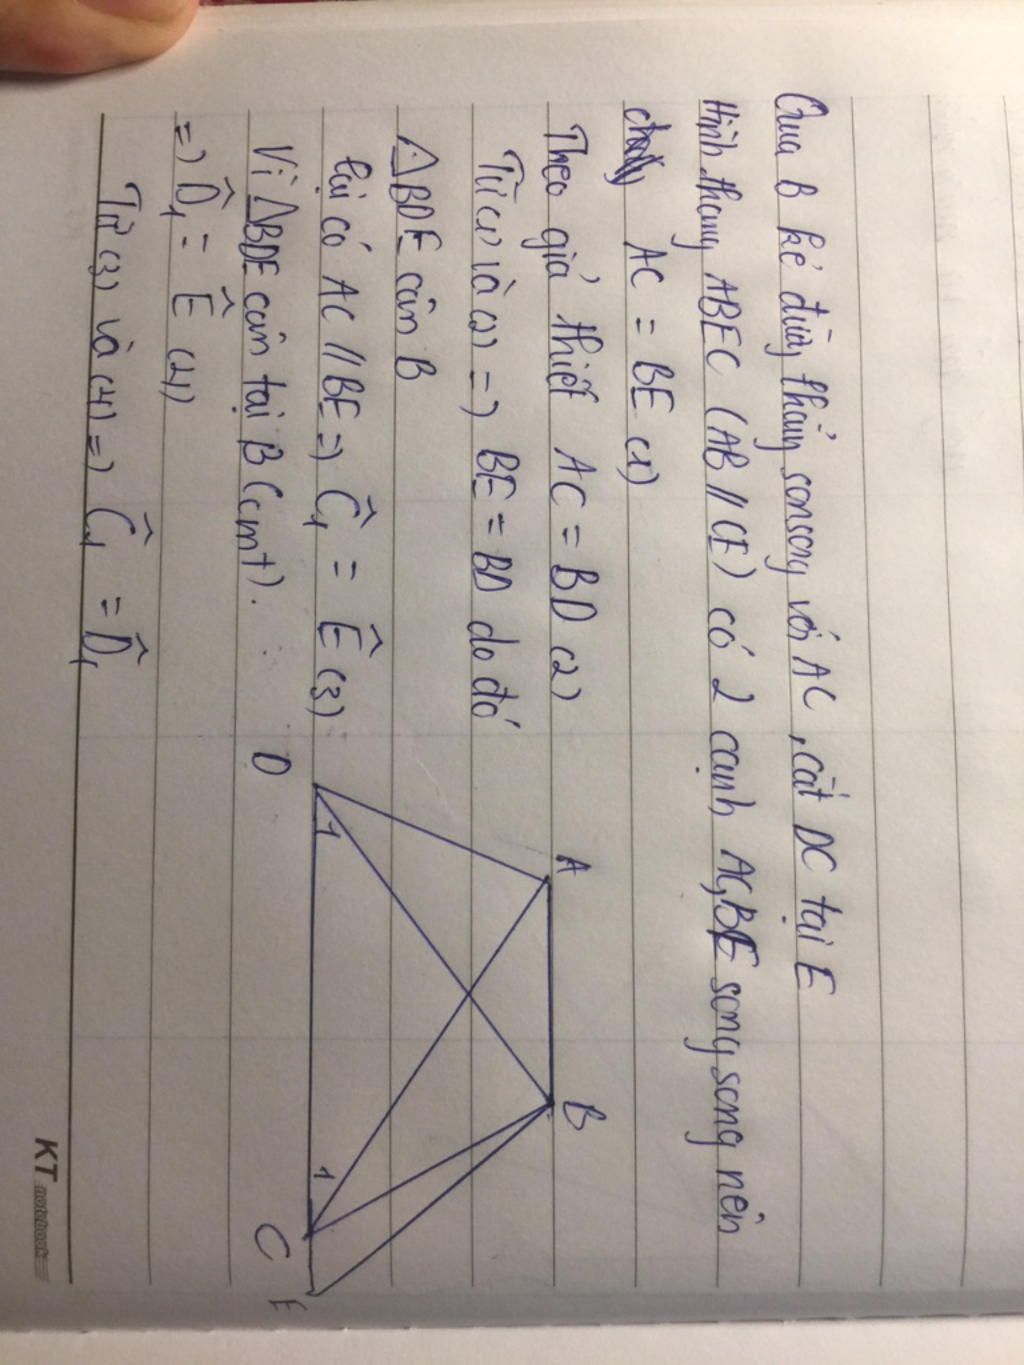 Qua B kẻ đường thẳng song song với AC, cắt DC tại E
Hình thang ABEC (AB // CE) có 2 cạnh AC, BE song song nên
AC = BE (1)
Theo giả thiết AC = BD (2)
Từ (1) và (2) => BE = BD do đó
△BDE cân B
lại có AC // BE => Ĉ₁ = Ê (3)
Vì △BDE cân tại B (cmt).
=> D̂₁ = Ê (4)
Từ (3) và (4) => Ĉ₁ = D̂₁
A
B
D
1
1
C
E
KT notebook